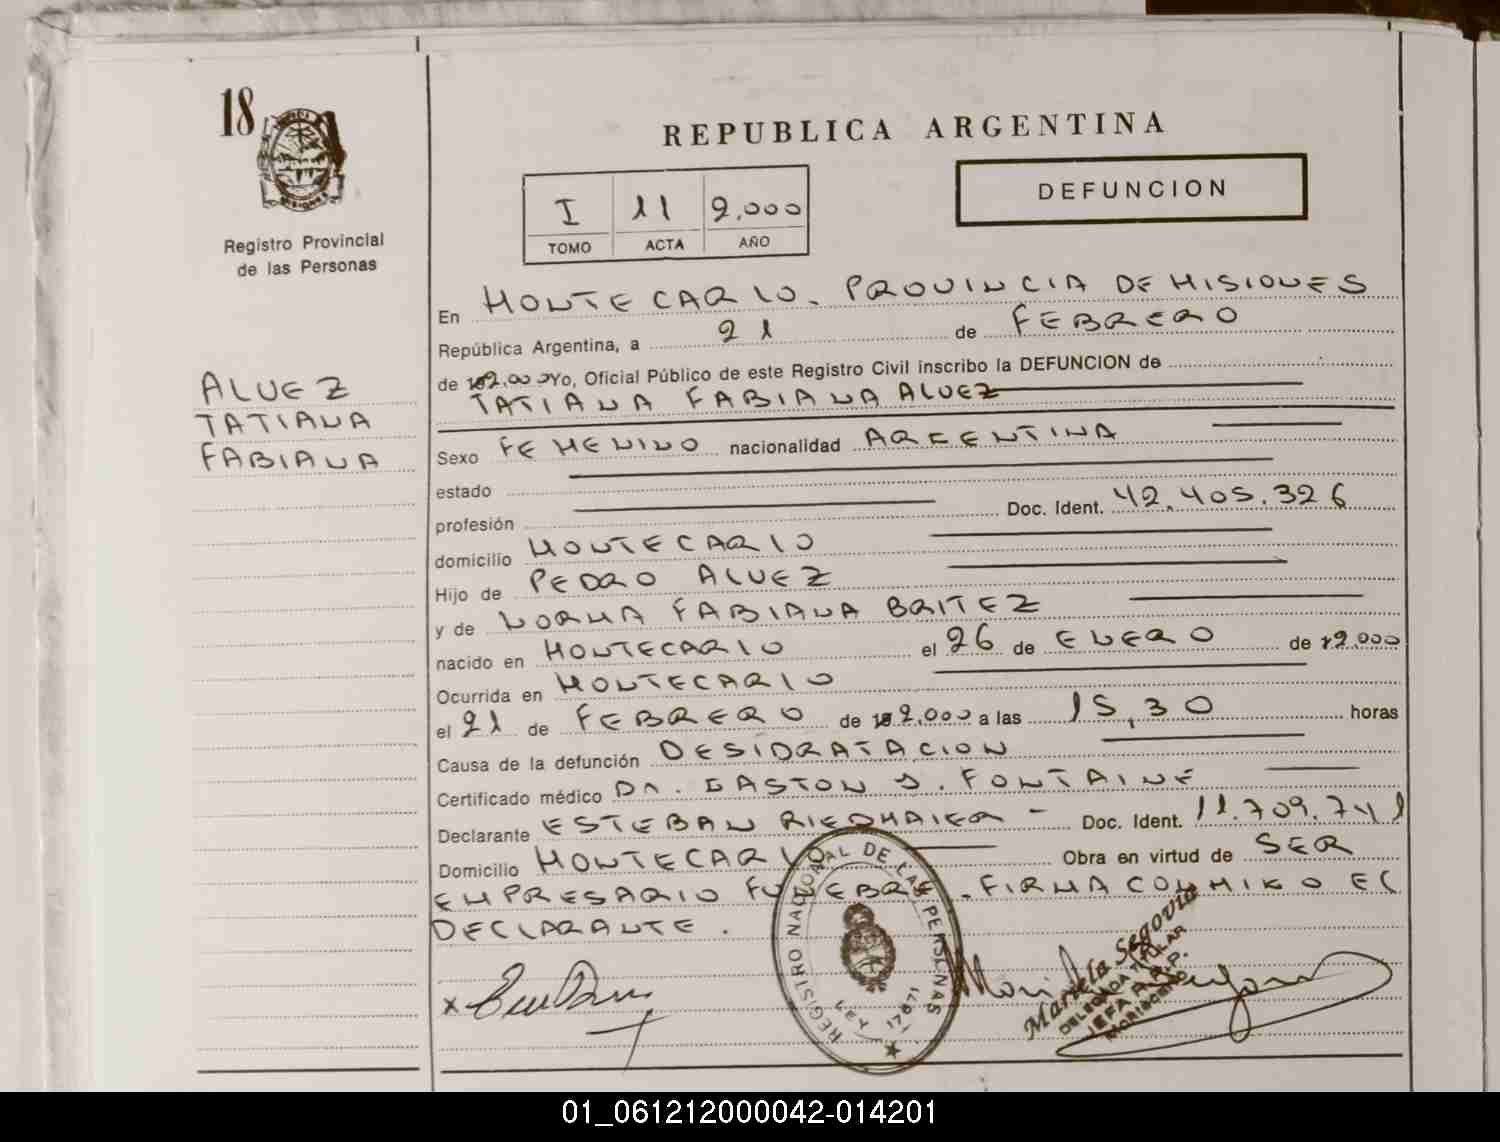 18
Registro Provincial
de las Personas
ALVEZ
TATIANA
FABIANA
REPUBLICA ARGENTINA
I 11 2.000
TOMO ACTA AÑO
DEFUNCION
En MONTECARLO. PROVINCIA DE MISIONES
República Argentina, a 21 de FEBRERO
de 2.000 Yo, Oficial Público de este Registro Civil inscribo la DEFUNCION de
TATIANA FABIANA ALVEZ
Sexo FEMENINO nacionalidad ARGENTINA
estado
profesión Doc. Ident. 42.405.326
domicilio MONTECARLO
Hijo de PEDRO ALVEZ
y de NORMA FABIANA BRITEZ
nacido en MONTECARLO el 26 de ENERO de 2.000
Ocurrida en MONTECARLO
el 21 de FEBRERO de 2.000 a las 15,30 horas
Causa de la defunción DESIDRATACION
Certificado médico DR. GASTON J. FONTAINE
Declarante ESTEBAN RIEDMAIER - Doc. Ident. 11.709.741
Domicilio MONTECARLO Obra en virtud de SER
EMPRESARIO FUNEBRE. FIRMA CONMIGO EL
DECLARANTE.
x
REGISTRO NACIONAL DE LAS PERSONAS
Ley 17671
Mariela Segovia
DELEGADA TITULAR
JEFA R.P.P.
01_061212000042-014201